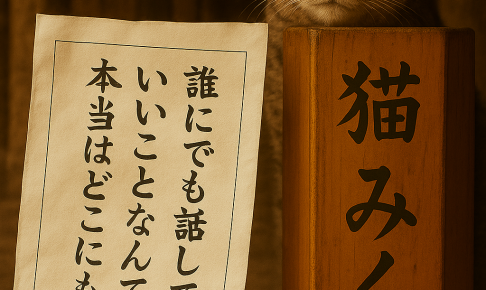 誰にでも話して
いいことなんて
本当はどこにも
猫みく